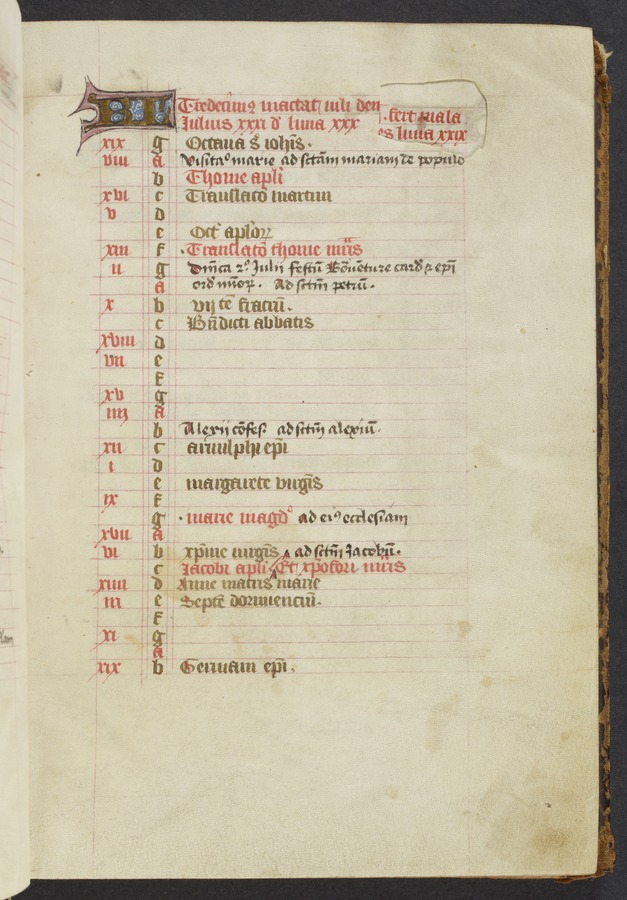 KL Tredecimus mactat iuli den. fert mala
Iulius xxxi d' luna xxx s luna xxix
xix g Octaua s iohis.
viii a Visita° marie ad sctam mariam de populo
b Thome apli
xvi c Translaco martini
v d
e Oct' aplorz
xiii f Translaco thome mris
ii g Dnica 2ª Iulii festu Bonuenture card z epi
a ord mnor. Ad sctm petru.
x b vii tem fratrum.
c Bndicti abbatis
xviii d
vii e
f
xv g
iiii a
b Alexii cofes. ad sctm alexiu.
xii c arnulphi epi
i d
e margarete virgis
ix f
g marie magd° ad ei9 ecclesiam
xvii a
vi b xpine virgis ad sctm Iacobu.
c Iacobi apli Et xpofori mris
xiiii d Anne matris marie
iii e Septe dormencium.
f
xi g
a
xix b Germani epi.